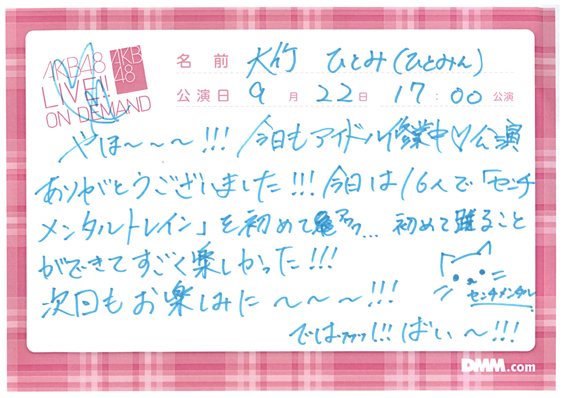 AKB48
LIVE!!
ON DEMAND
AKB
48
名前 大竹 ひとみ(ひとみん)
公演日 9月22日 17:00公演
やほ〜〜〜!!! 今日もアイドル修業中♡公演
ありがとうございました!!! 今日は16人で「センチ
メンタルトレイン」を初めて... 初めて踊ること
ができてすごく楽しかった!!!
次回もお楽しみに〜〜〜!!!
センチメンタル
では!!! ばい〜!!!
DMM.com